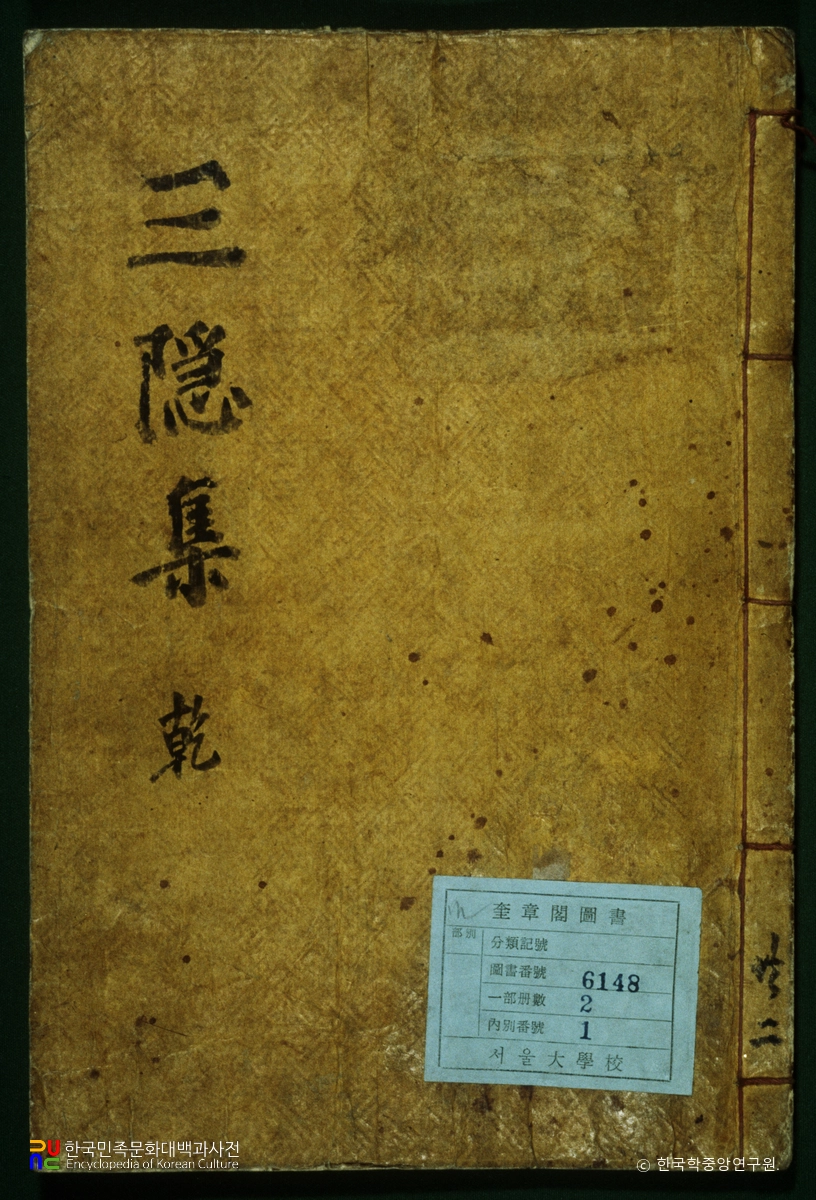 三隐集
乾
共二
奎章閣圖書
部別
分類記號
圖書番號 6148
一部册數 2
內別番號 1
서울大學校
한국민족문화대백과사전
Encyclopedia of Korean Culture
© 한국학중앙연구원.